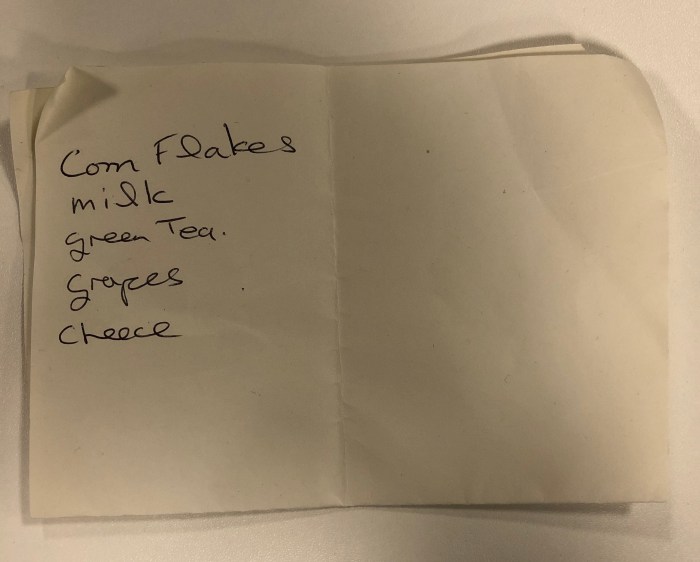 Corn Flakes
milk
green Tea.
grapes
cheece